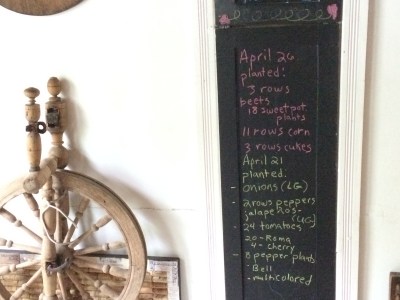 April 26
planted:
3 rows
beets
18 sweet pot
plants
11 rows corn
3 rows cukes
April 21
planted:
- onions (LG)
- 2 rows peppers
jalapeños-
(UG)
- 24 tomatoes
20 - Roma
4 - cherry
- 8 pepper plants
- Bell
- multicolored